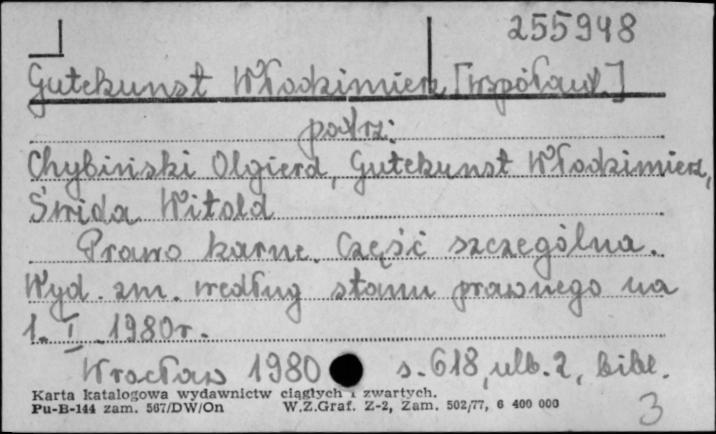 255948
Gutekunst Włodzimierz [współaut.]
patrz:
Chybiński Olgierd, Gutekunst Włodzimierz,
Świda Witold
Prawo karne. Część szczególna.
Wyd. zm. według stanu prawnego na
1. I. 1980r.
Wrocław 1980 s. 618, ulb. 2, bibl.
Karta katalogowa wydawnictw ciągłych i zwartych.
Pu-B-144 zam. 567/DW/On W.Z.Graf. Z-2, Zam. 502/77, 6 400 000
3